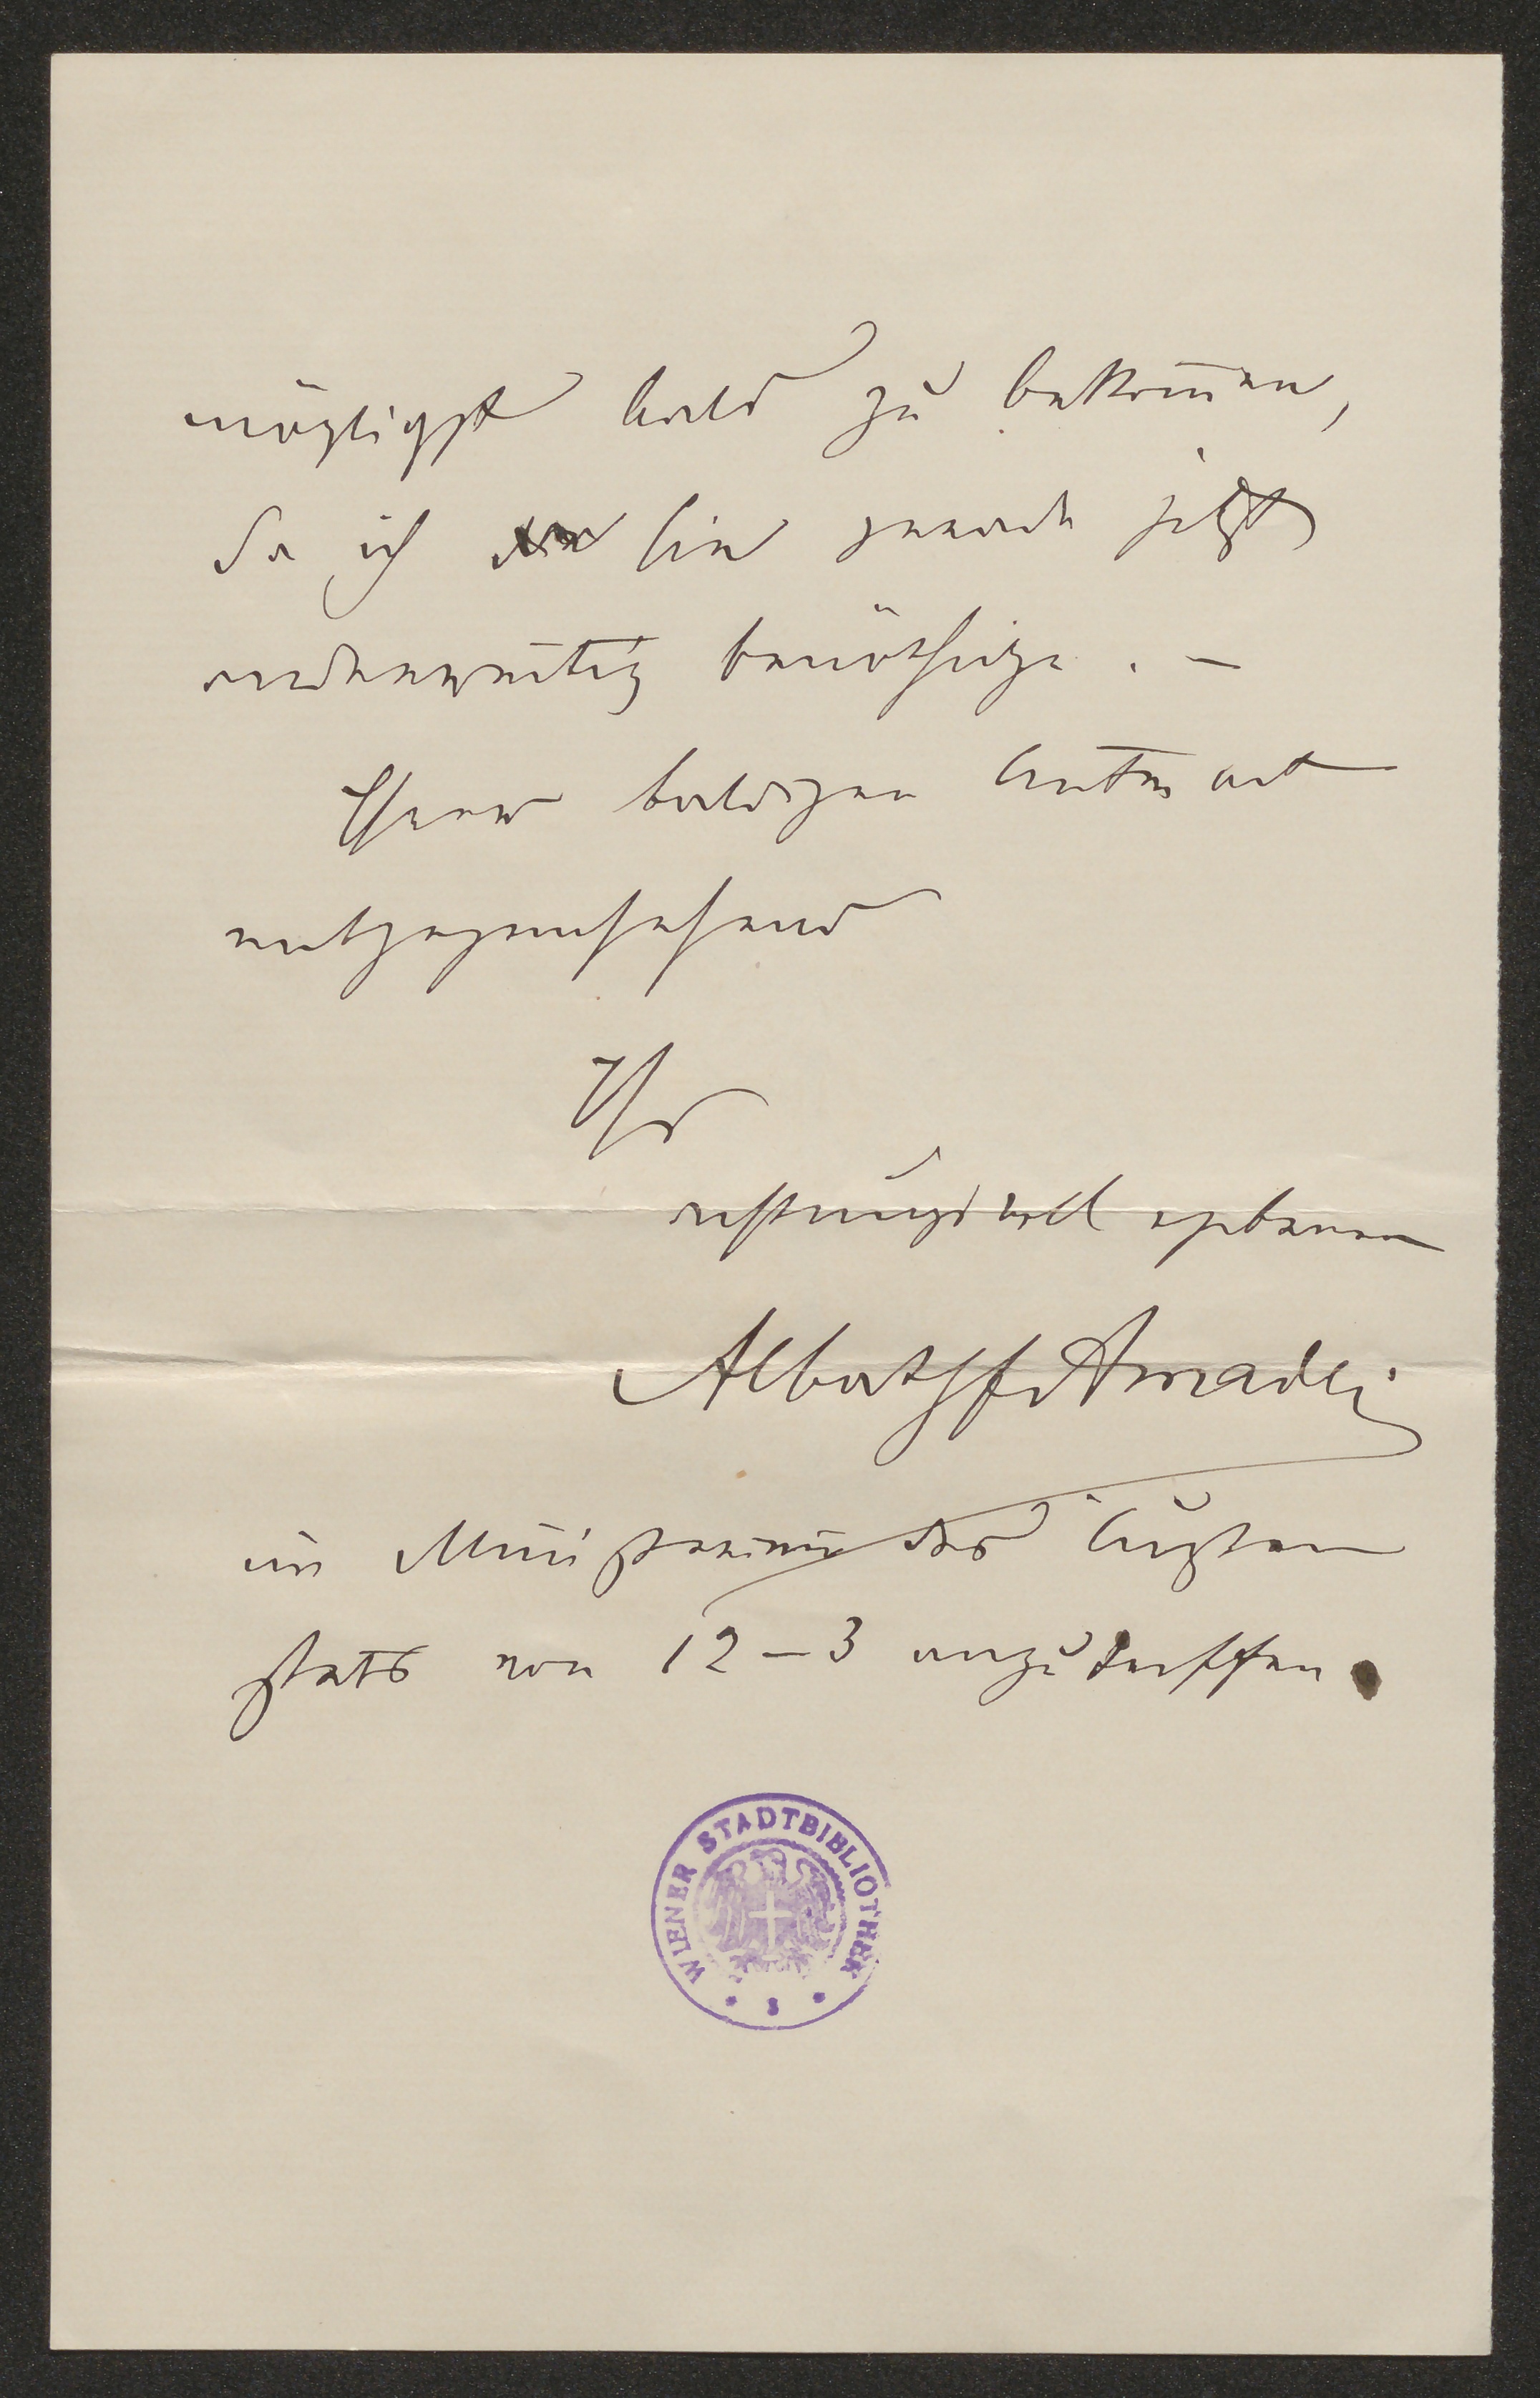 möglichst bald zu bekommen,
da ich sie gerade jetzt
anderweitig benöthige. –
Ihrer baldigen Antwort
entgegensehend
Ihr
achtungsvoll ergebener
Albert Amadei
im Ministerium des Äußern
stets von 12–3 anzutreffen.
WIENER STADTBIBLIOTHEK